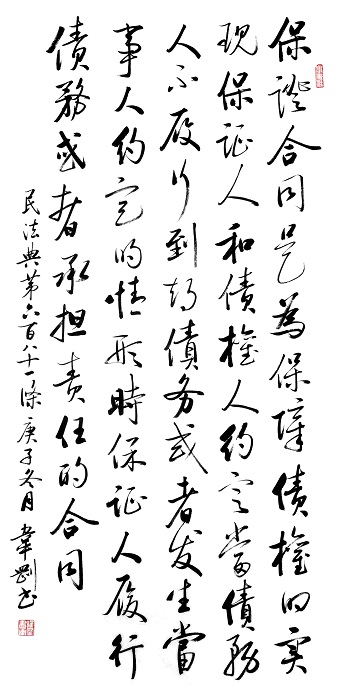 保證合同是為保障債權的实
现保证人和債權人約定當債務
人不履行到期債务或者发生當
事人約定的情形時保证人履行
債務或者承担責任的合同
民法典第六百八十一條庚子冬月韋剛书